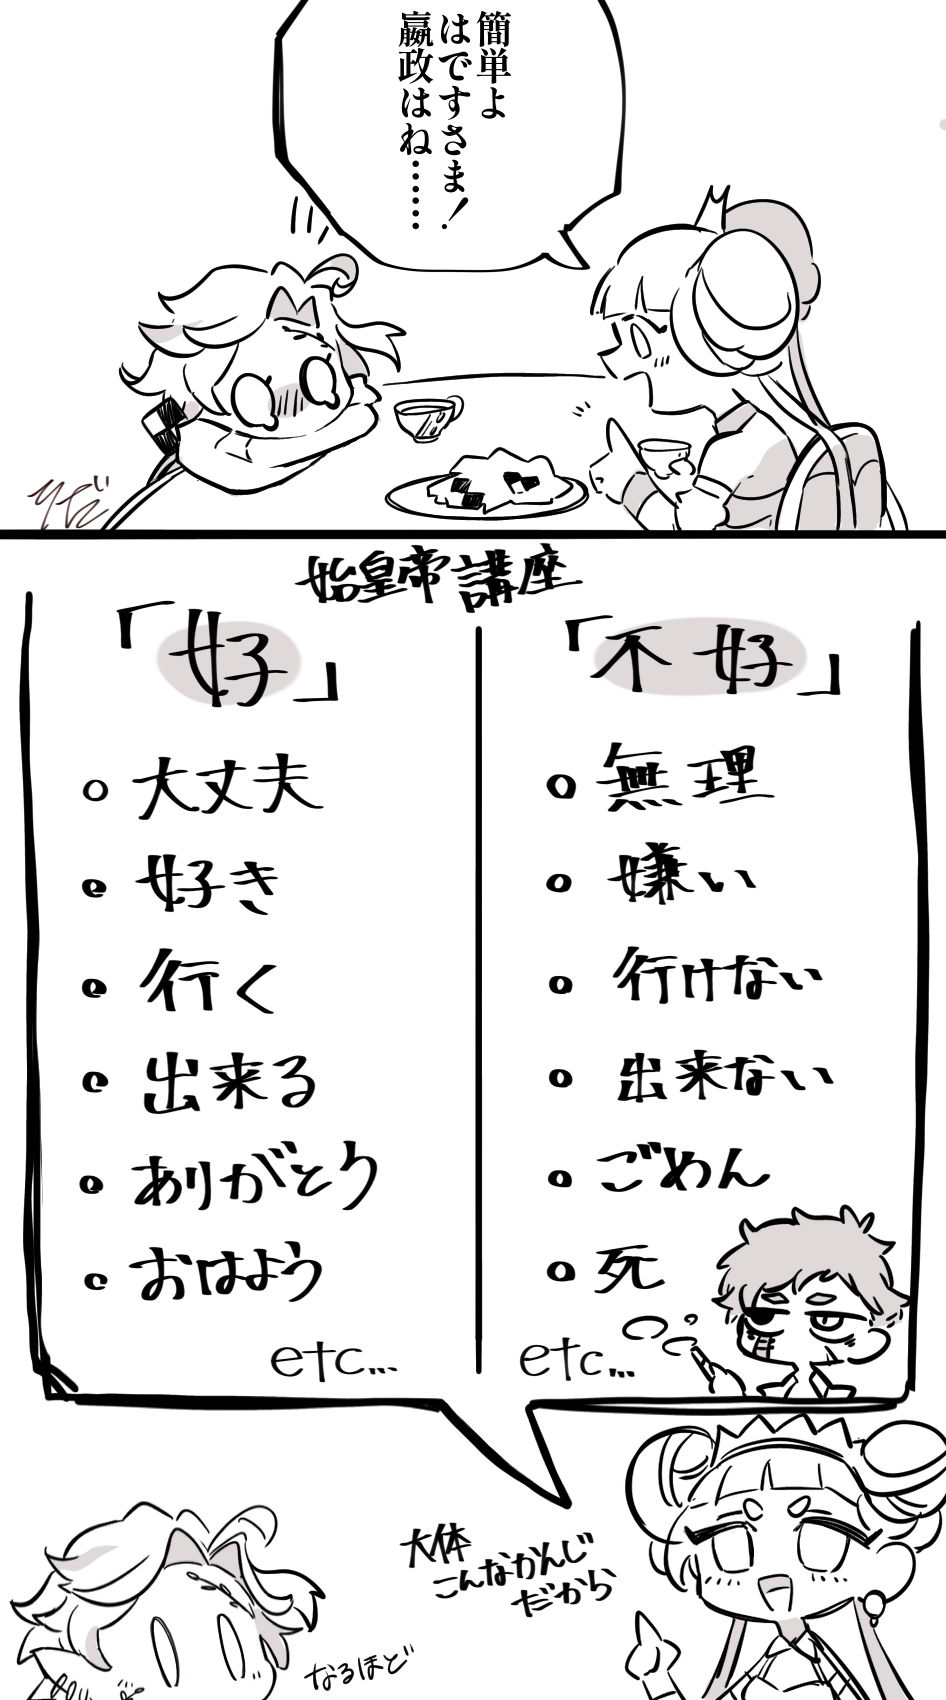 簡単よ
はですさま！
嬴政はね……
始皇帝講座
「好」
大丈夫
好き
行く
出来る
ありがとう
おはよう
etc...
「不好」
無理
嫌い
行けない
出来ない
ごめん
死
etc...
大体
こんなかんじ
だから
なるほど